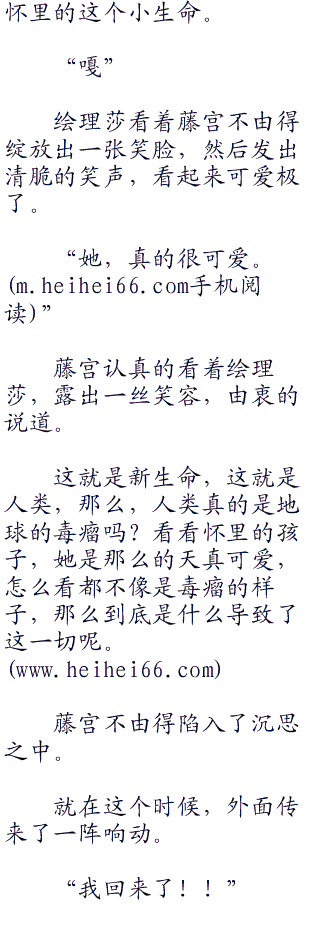 怀里的这个小生命。
“嘎”
绘理莎看着藤宫不由得
绽放出一张笑脸，然后发出
清脆的笑声，看起来可爱极
了。
“她，真的很可爱。
(m.heihei66.com手机阅
读)”
藤宫认真的看着绘理
莎，露出一丝笑容，由衷的
说道。
这就是新生命，这就是
人类，那么，人类真的是地
球的毒瘤吗？看看怀里的孩
子，她是那么的天真可爱，
怎么看都不像是毒瘤的样
子，那么到底是什么导致了
这一切呢。
(www.heihei66.com)
藤宫不由得陷入了沉思
之中。
就在这个时候，外面传
来了一阵响动。
“我回来了！！”